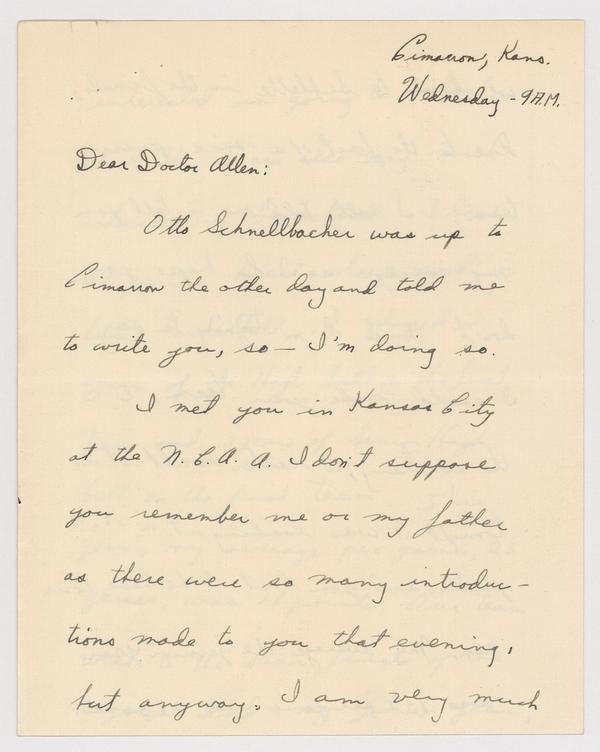 Cimarron, Kans.
Wednesday - 9 A.M.
Dear Doctor Allen:
Otto Schnellbacher was up to
Cimarron the other day and told me
to write you, so — I'm doing so.
I met you in Kansas City
at the N.C.A.A. I don't suppose
you remember me or my father
as there were so many introduc-
tions made to you that evening,
but anyway, I am very much